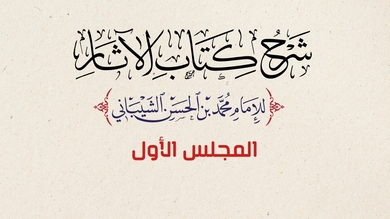 شَرْحُ كِتَابِ الآثَارِ
لِلإِمَامِ مُحَمَّدِ بْنِ الحَسَنِ الشَّيْبَانِي
المجلس الأول